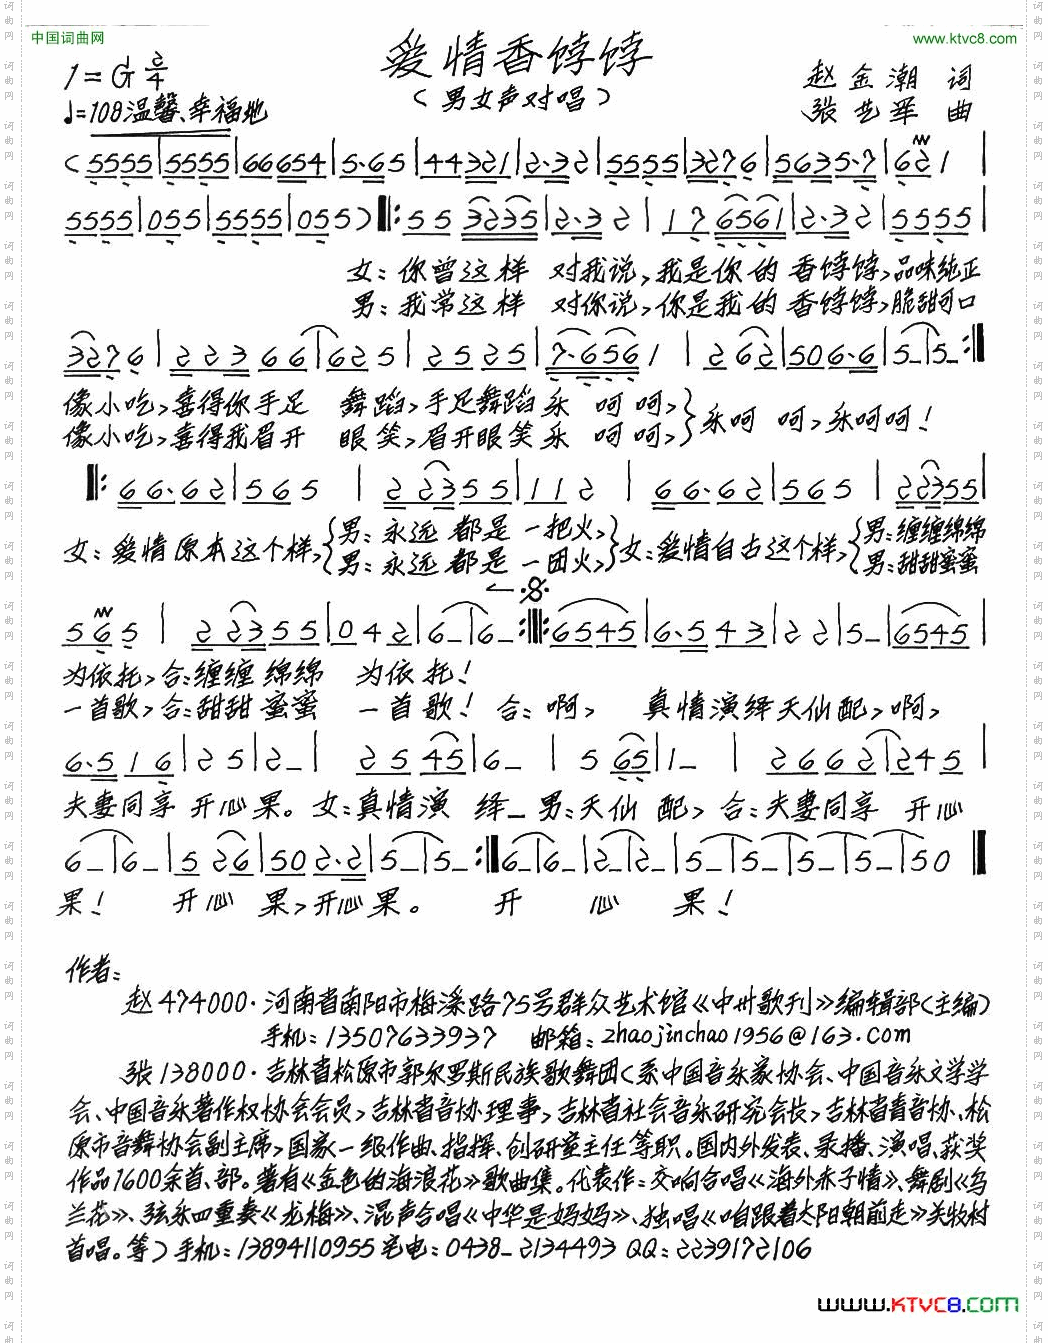 中国词曲网
www.ktvc8.com
爱情香饽饽
(男女声对唱)
1=G 2/4
♩=108 温馨、幸福地
赵金潮 词
张艺军 曲
(5555|5555|66654|5·65|44321|2·32|5555|3276|5635·7|621|
5555|055|5555|055)‖:55 3235|2·32|17 6561|2·32|5555|
女:你曾这样 对我说,我是你的香饽饽,品味纯正
男:我常这样 对你说,你是我的香饽饽,脆甜可口
3276|22366|6625|2525|7·6561|262|506·6|5_|5_:‖
像小吃,喜得你手足 舞蹈,手足舞蹈乐 呵呵,}乐呵 呵,乐呵呵!
像小吃,喜得我眉开 眼笑,眉开眼笑乐 呵呵,
‖:66·62|565|22355|112|66·62|565|22355|
女:爱情原本这个样,{男:永远都是一把火,}女:爱情自古这个样,{男:缠缠绵绵
男:永远都是一团火, 男:甜甜蜜蜜
565|22355|042|6_|6_:‖:6545|6·543|22|5_|6545|
为依托,合:缠缠绵绵 为依托!
一首歌,合:甜甜蜜蜜 一首歌! 合:啊, 真情演绎天仙配,啊,
6·516|25|2_|2545|6_|565|1_|2662|245|
夫妻同享 开心果。女:真情演 绎_男:天仙 配, 合:夫妻同享 开心
6_|6_|526|502·2|5_|5_:‖6_|6_|2_|2_|5_|5_|5_|5_|50‖
果! 开心 果,开心果。 开 心 果!
作者:
赵474000·河南省南阳市梅溪路75号群众艺术馆《中州歌刊》编辑部(主编)
手机:13507633937 邮箱:zhaojinchao1956@163.com
张138000·吉林省松原市郭尔罗斯民族歌舞团(系中国音乐家协会、中国音乐文学学
会、中国音乐著作权协会会员,吉林省音协理事,吉林省社会音乐研究会长,吉林省青音协、松
原市音舞协会副主席,国家一级作曲、指挥、创研室主任等职。国内外发表、录播、演唱、获奖
作品1600余首、部。著有《金色的海浪花》歌曲集。代表作:交响合唱《海外赤子情》、舞剧《乌
兰花》、弦乐四重奏《龙梅》、混声合唱《中华是妈妈》、独唱《咱跟着太阳朝前走》关牧村
首唱。等)手机:13894110955宅电:0438-2134493 QQ:2239172106
www.KTVC8.com
词曲网